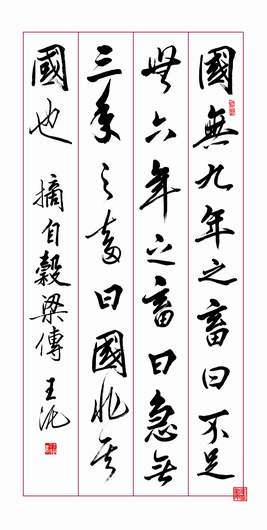 國無九年之畜曰不足
無六年之畜曰急無
三年之畜曰國非其
國也 摘自穀梁傳 王